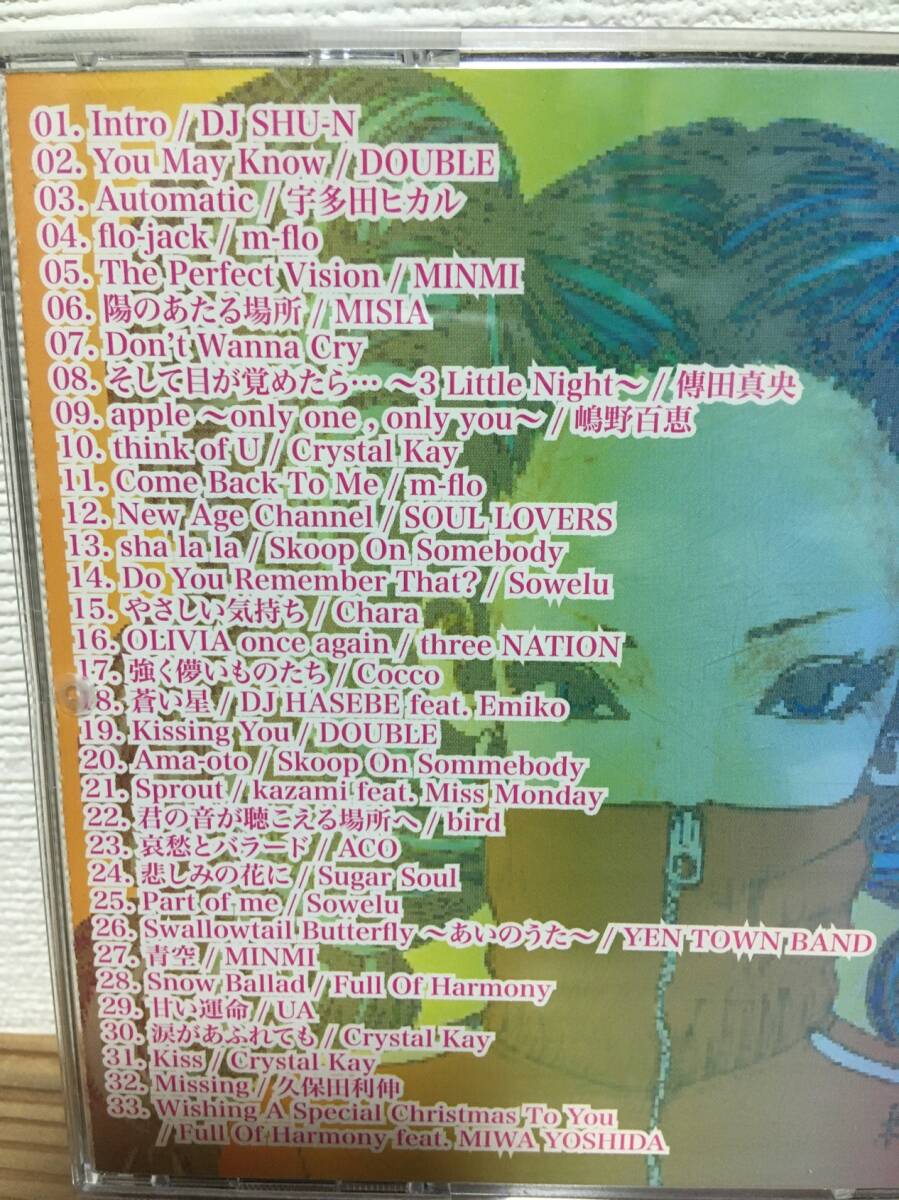 01. Intro / DJ SHU-N
02. You May Know / DOUBLE
03. Automatic / 宇多田ヒカル
04. flo-jack / m-flo
05. The Perfect Vision / MINMI
06. 陽のあたる場所 / MISIA
07. Don't Wanna Cry
08. そして目が覚めたら… 〜3 Little Night〜 / 傳田真央
09. apple 〜only one , only you〜 / 嶋野百恵
10. think of U / Crystal Kay
11. Come Back To Me / m-flo
12. New Age Channel / SOUL LOVERS
13. sha la la / Skoop On Somebody
14. Do You Remember That? / Sowelu
15. やさしい気持ち / Chara
16. OLIVIA once again / three NATION
17. 強く儚いものたち / Cocco
18. 蒼い星 / DJ HASEBE feat. Emiko
19. Kissing You / DOUBLE
20. Ama-oto / Skoop On Sommebody
21. Sprout / kazami feat. Miss Monday
22. 君の音が聴こえる場所へ / bird
23. 哀愁とバラード / ACO
24. 悲しみの花に / Sugar Soul
25. Part of me / Sowelu
26. Swallowtail Butterfly 〜あいのうた〜 / YEN TOWN BAND
27. 青空 / MINMI
28. Snow Ballad / Full Of Harmony
29. 甘い運命 / UA
30. 涙があふれても / Crystal Kay
31. Kiss / Crystal Kay
32. Missing / 久保田利伸
33. Wishing A Special Christmas To You
/ Full Of Harmony feat. MIWA YOSHIDA